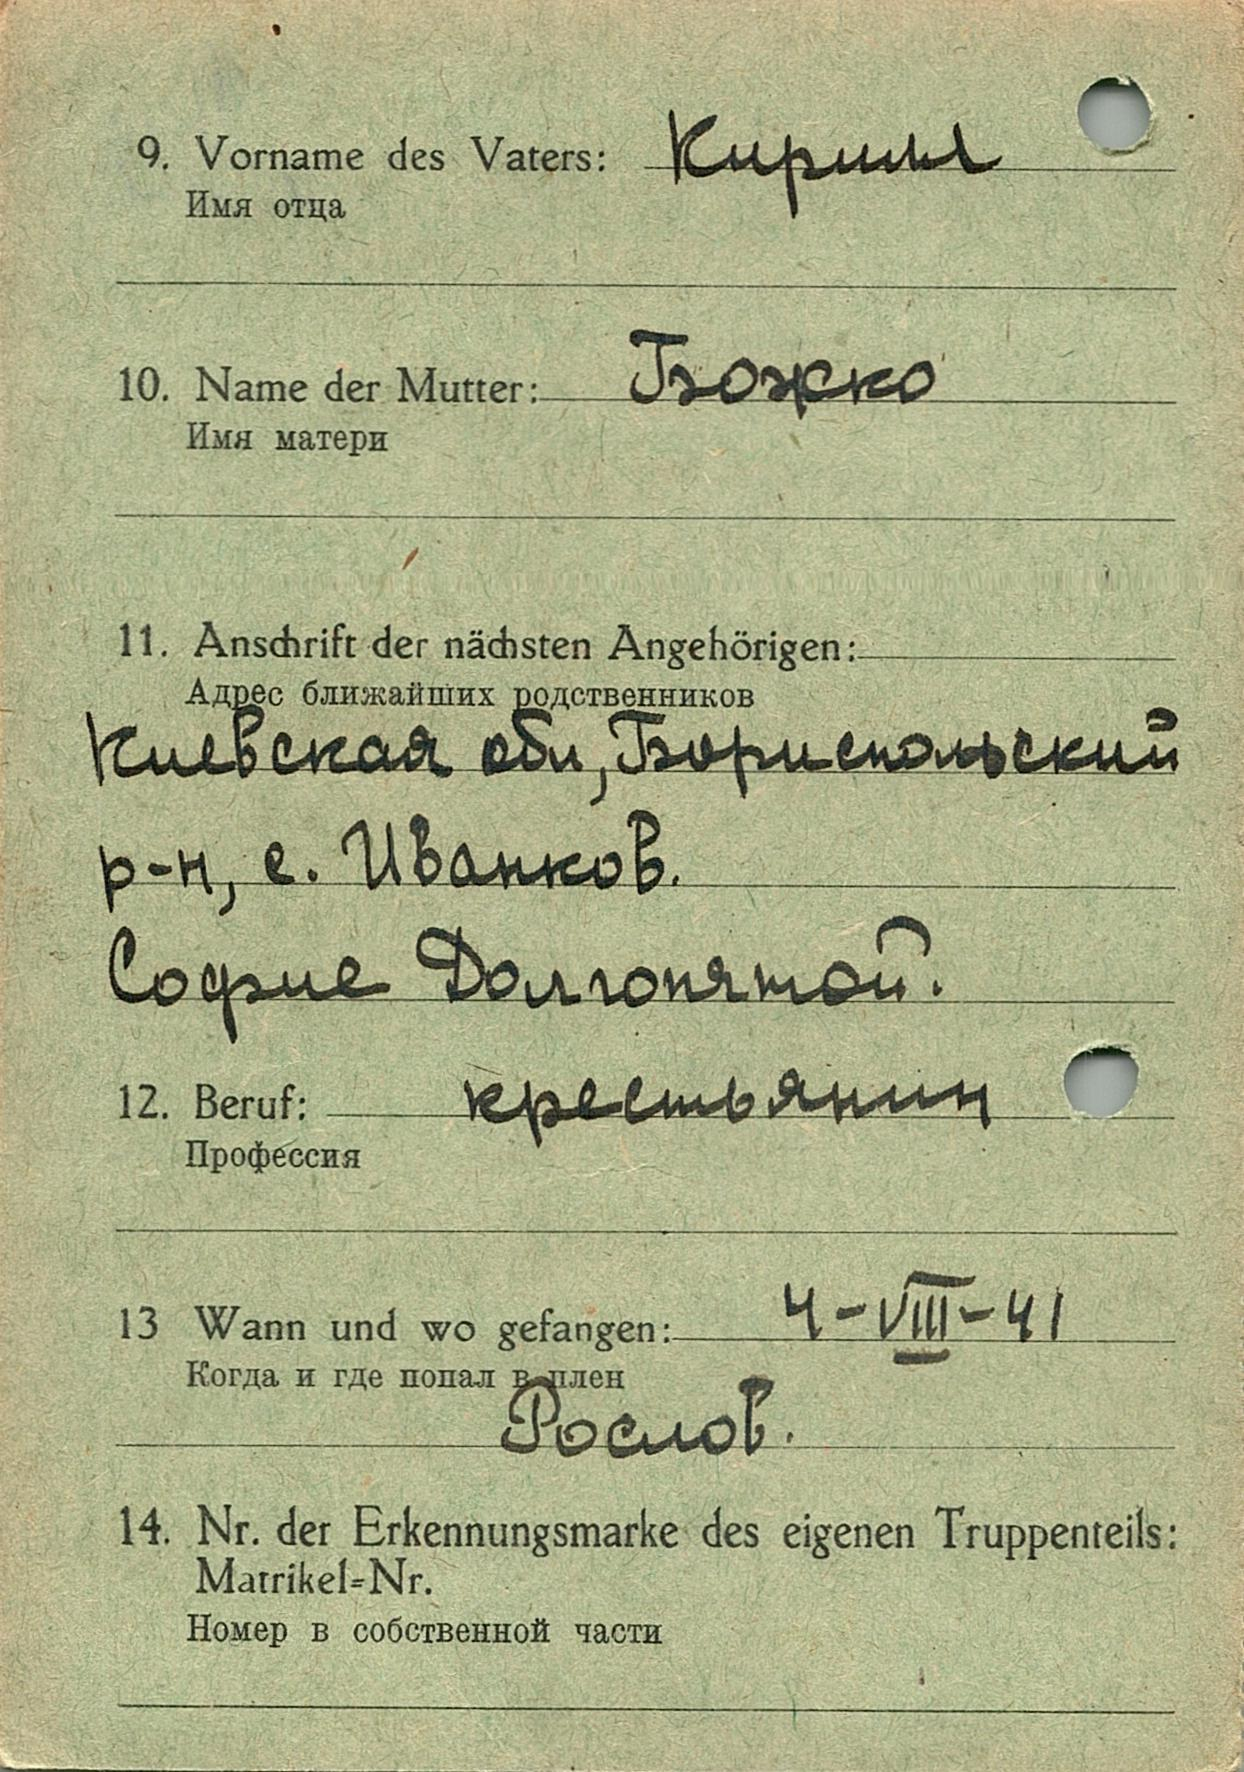 9. Vorname des Vaters: Кирилл
Имя отца
10. Name der Mutter: Божко
Имя матери
11. Anschrift der nächsten Angehörigen:
Адрес ближайших родственников
Киевская обл, Бориспольский
р-н, с. Иванков.
Софие Долгопятой.
12. Beruf: крестьянин
Профессия
13 Wann und wo gefangen: 4-VIII-41
Когда и где попал в плен
Рослов.
14. Nr. der Erkennungsmarke des eigenen Truppenteils:
Matrikel=Nr.
Номер в собственной части